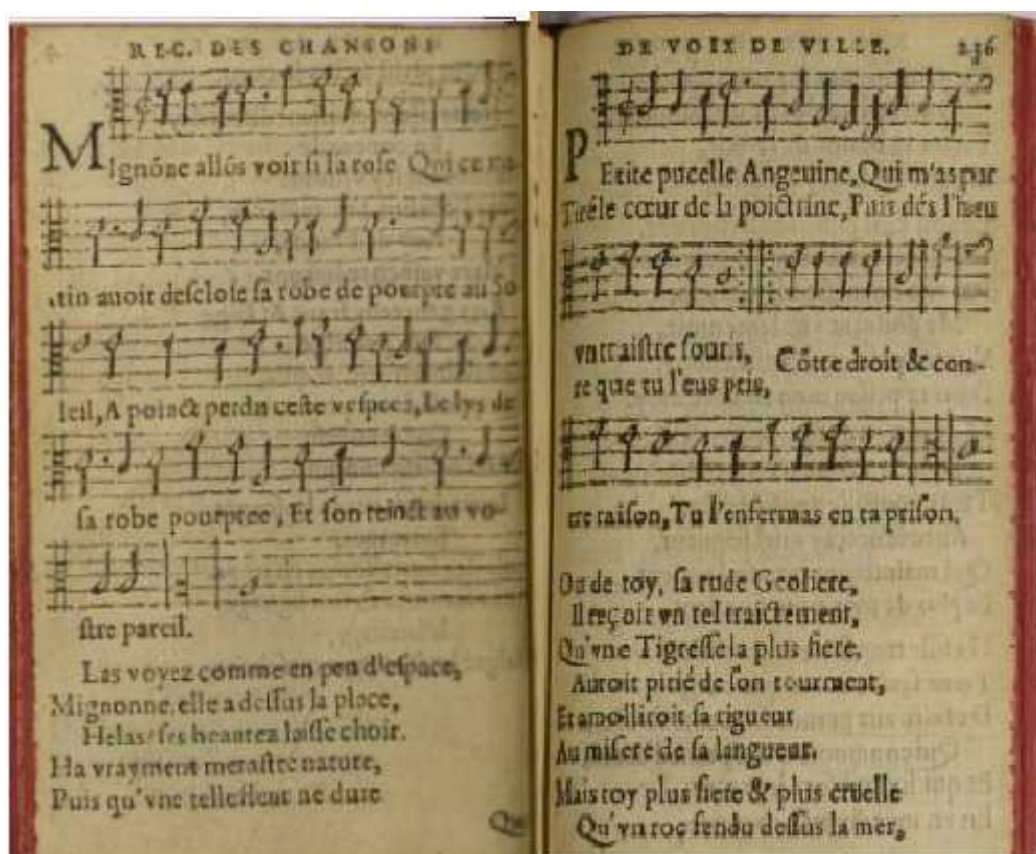 REC. DES CHANSONS
MIgnõne allõs voir si la rose Qui ce ma-
tin auoit desclose sa robe de pourpre au So-
leil, A poinct perdu ceste vespree, Le lys de
sa robe pourpree, Et son teinct au vo-
stre pareil.
Las voyez comme en peu d'espace,
Mignonne, elle a dessus la place,
Helas! ses beautez laissé choir.
Ha vrayment merastre nature,
Puis qu'vne telle fleur ne dure
Que
DE VOIX DE VILLE. 236
PEtite pucelle Angeuine, Qui m'as par
Tiré le cœur de la poictrine, Puis dés l'heu
vn traistre souris, Cõtte droit & con-
re que tu l'eus pris,
tre raison, Tu l'enfermas en ta prison.
Ou de toy, sa rude Geoliere,
Il reçoit vn tel traictement,
Qu'vne Tigresse la plus fiere,
Auroit pitié de son tourment,
Et amolliroit sa rigueur
Au misere de sa langueur.
Mais toy plus fiere & plus cruelle
Qu'vn roc fendu dessus la mer,